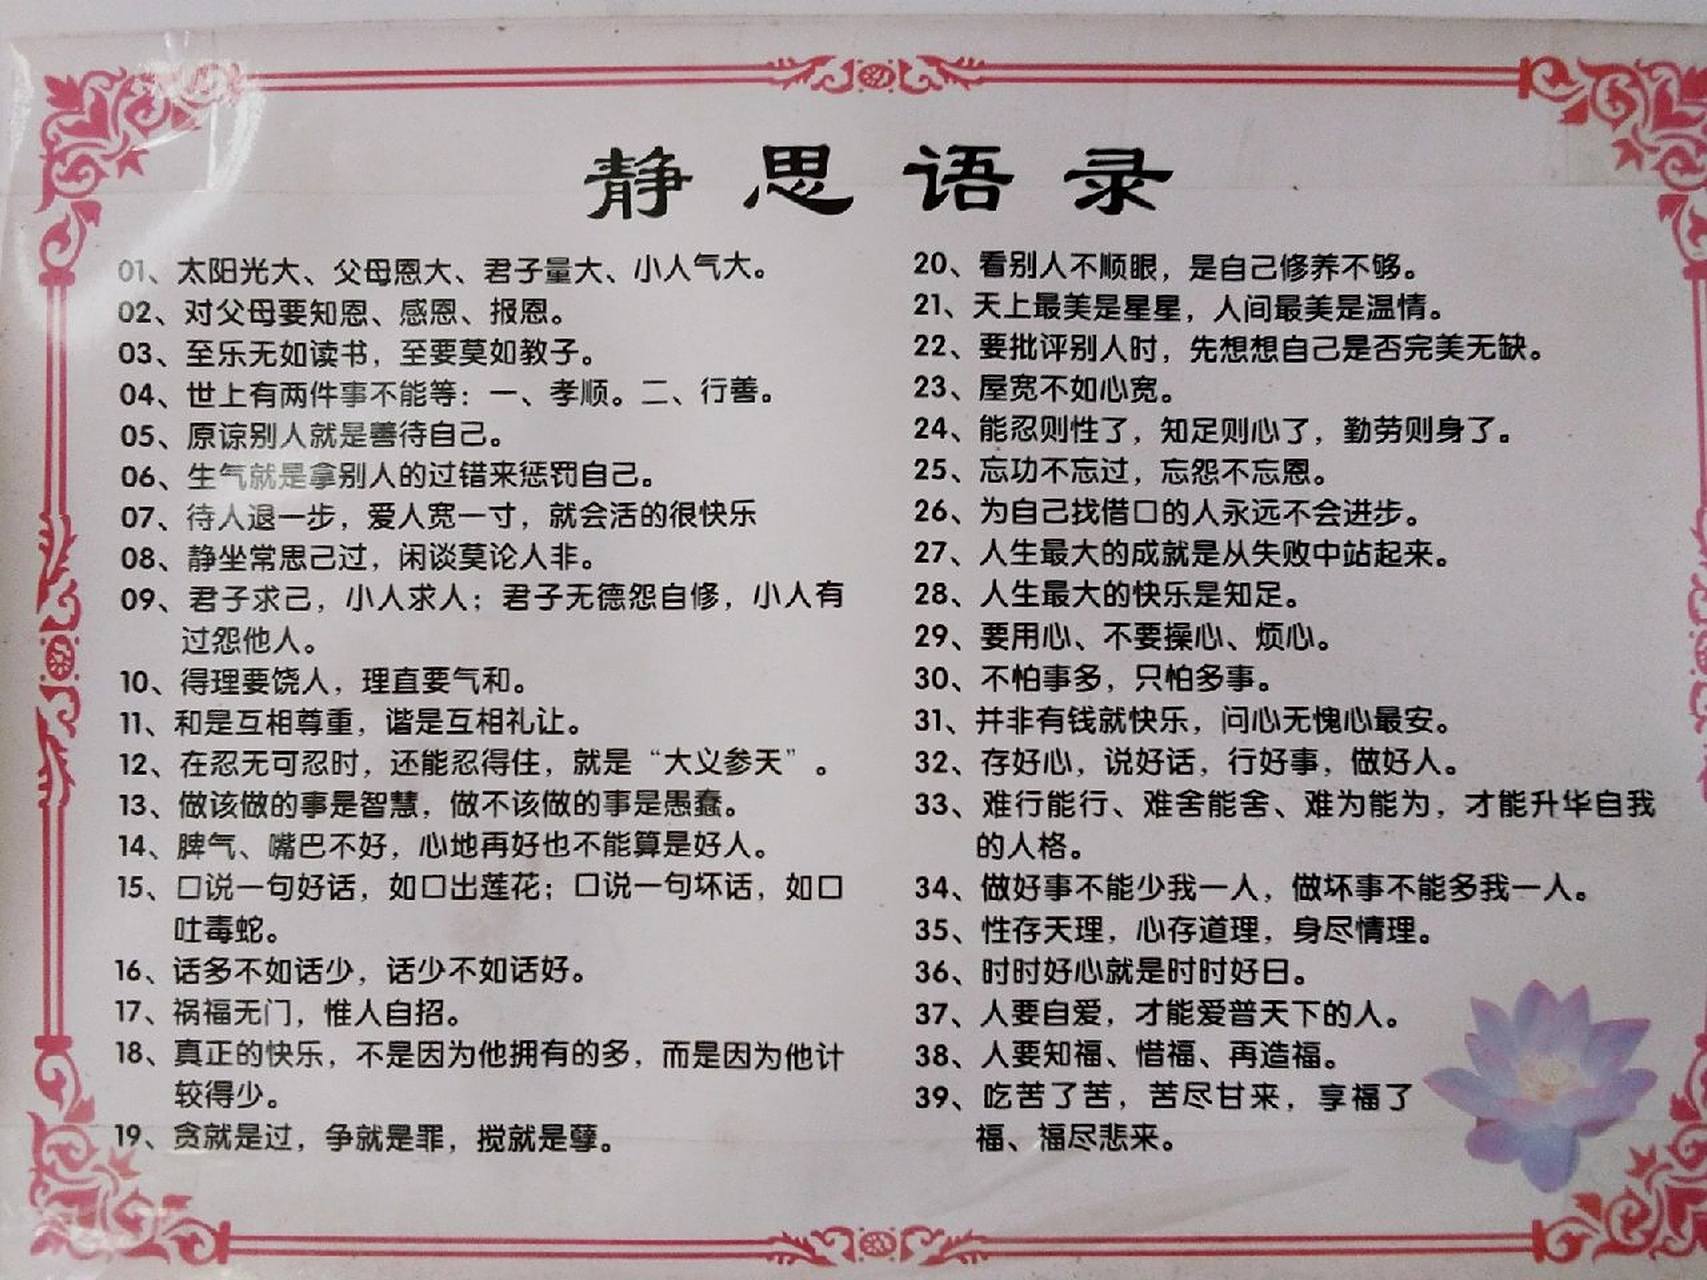 静思语录
01、太阳光大、父母恩大、君子量大、小人气大。
02、对父母要知恩、感恩、报恩。
03、至乐无如读书，至要莫如教子。
04、世上有两件事不能等：一、孝顺。二、行善。
05、原谅别人就是善待自己。
06、生气就是拿别人的过错来惩罚自己。
07、待人退一步，爱人宽一寸，就会活的很快乐
08、静坐常思己过，闲谈莫论人非。
09、君子求己，小人求人；君子无德怨自修，小人有
过怨他人。
10、得理要饶人，理直要气和。
11、和是互相尊重，谐是互相礼让。
12、在忍无可忍时，还能忍得住，就是“大义参天”。
13、做该做的事是智慧，做不该做的事是愚蠢。
14、脾气、嘴巴不好，心地再好也不能算是好人。
15、口说一句好话，如口出莲花；口说一句坏话，如口
吐毒蛇。
16、话多不如话少，话少不如话好。
17、祸福无门，惟人自招。
18、真正的快乐，不是因为他拥有的多，而是因为他计
较得少。
19、贪就是过，争就是罪，搅就是孽。
20、看别人不顺眼，是自己修养不够。
21、天上最美是星星，人间最美是温情。
22、要批评别人时，先想想自己是否完美无缺。
23、屋宽不如心宽。
24、能忍则性了，知足则心了，勤劳则身了。
25、忘功不忘过，忘怨不忘恩。
26、为自己找借口的人永远不会进步。
27、人生最大的成就是从失败中站起来。
28、人生最大的快乐是知足。
29、要用心、不要操心、烦心。
30、不怕事多，只怕多事。
31、并非有钱就快乐，问心无愧心最安。
32、存好心，说好话，行好事，做好人。
33、难行能行、难舍能舍、难为能为，才能升华自我
的人格。
34、做好事不能少我一人，做坏事不能多我一人。
35、性存天理，心存道理，身尽情理。
36、时时好心就是时时好日。
37、人要自爱，才能爱普天下的人。
38、人要知福、惜福、再造福。
39、吃苦了苦，苦尽甘来，享福了
福、福尽悲来。